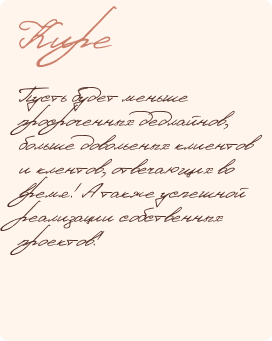 Кире
Пусть будет меньше
просроченных дедлайнов,
больше довольных клиентов
и клентов, отвечающих во
время! А также успешной
реализации собственных
проектов!